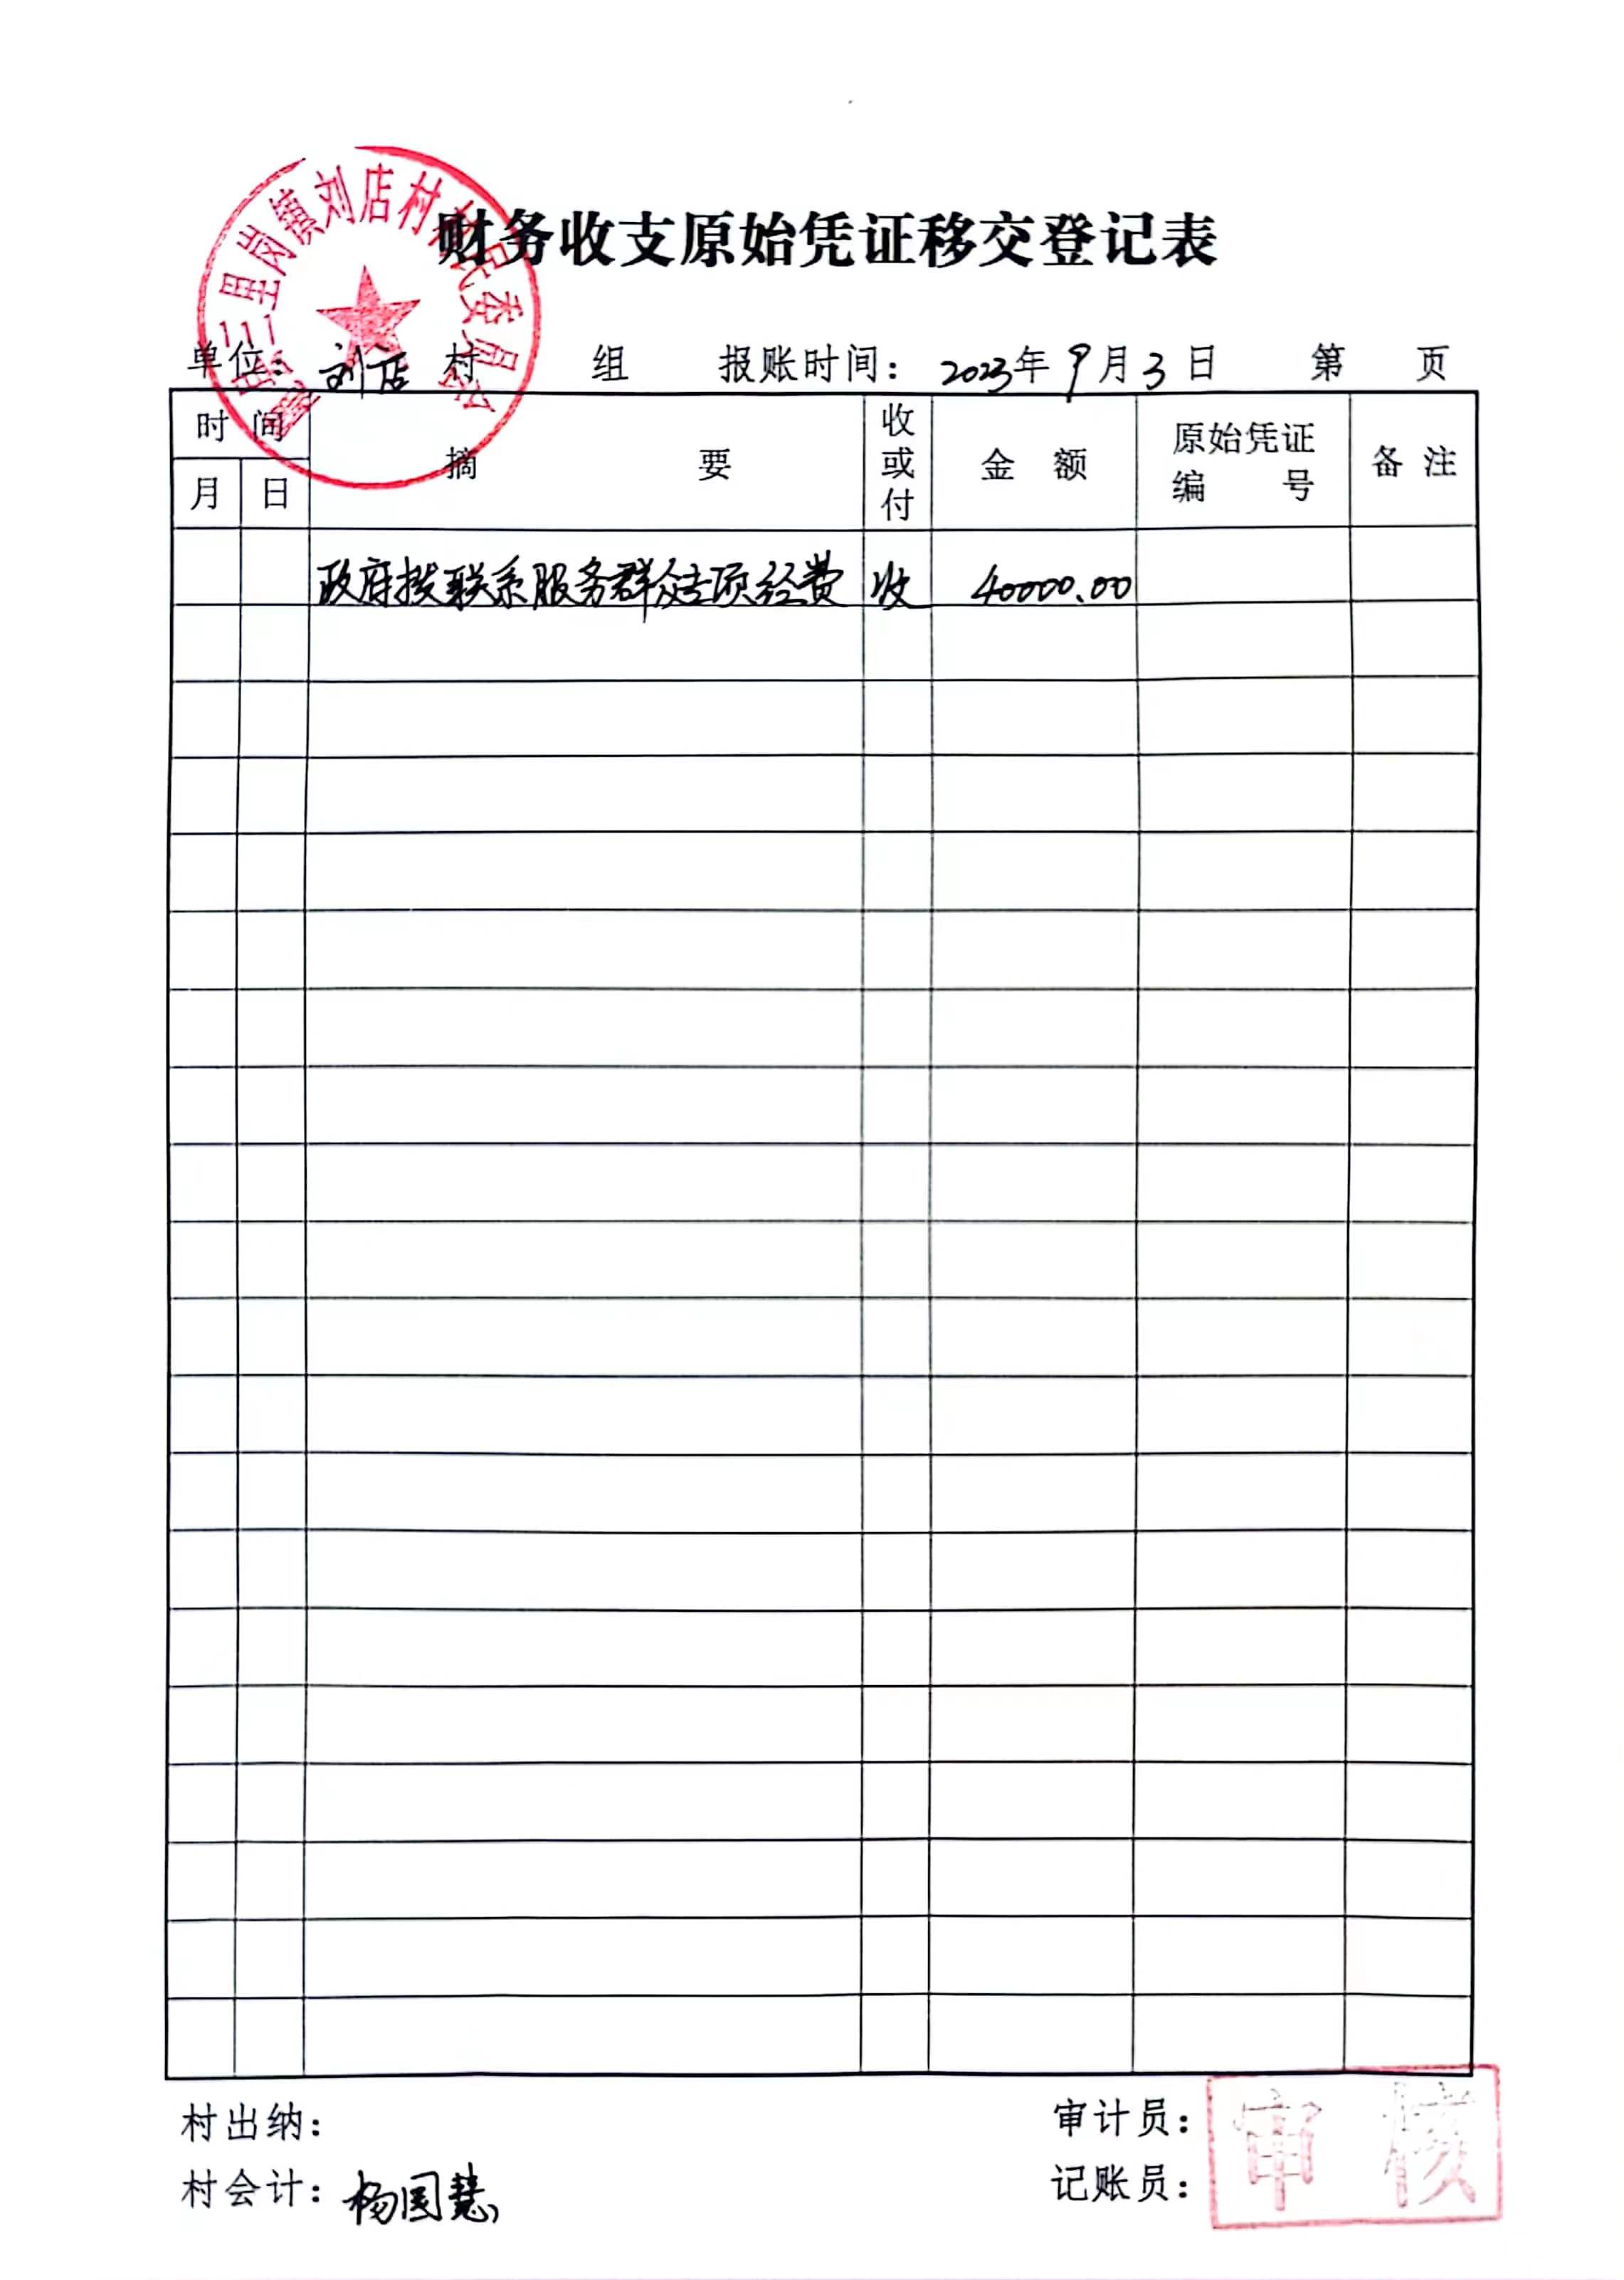 财务收支原始凭证移交登记表
三里岗镇刘店村村民委员会
单位：刘店 村 组 报账时间：2023年9月3日 第 页
时间 摘要 收或付 金额 原始凭证编号 备注
月 日
政府拨联系服务群众专项经费 收 40000.00
村出纳： 审计员：
村会计：杨国慧 记账员：
审核